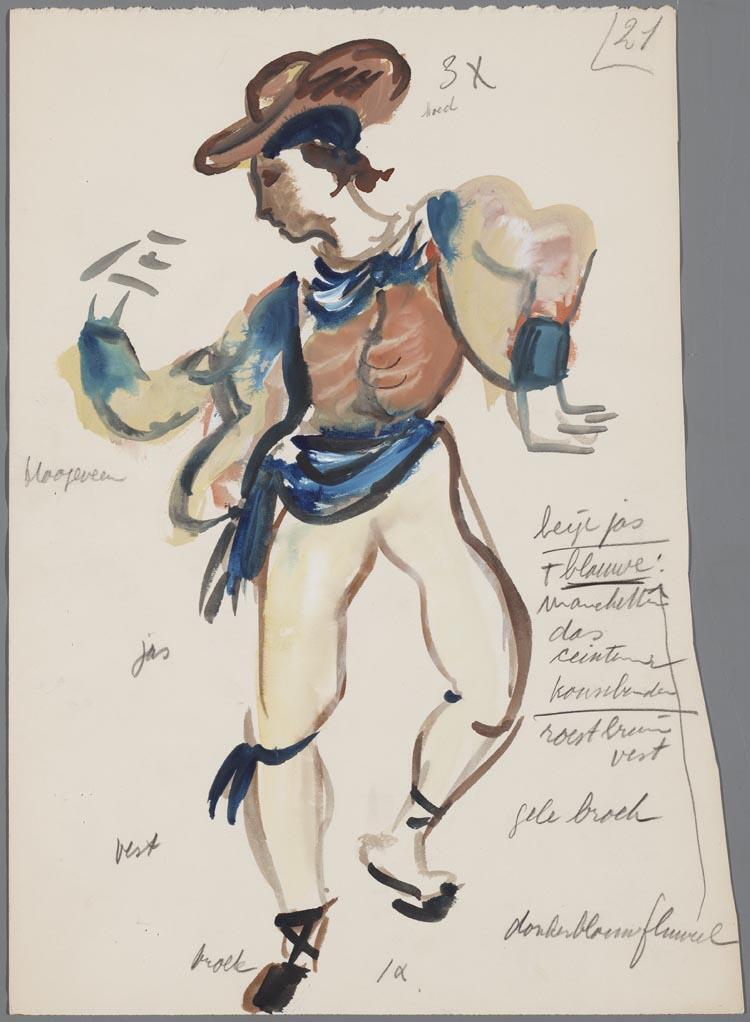 21
3 X
hoed
Hoogeveen
beige jas
+ blauwe:
manchetten
das
ceintuur
kousbanden
roestbruin
vest
gele broek
donkerblauw fluweel
jas
vest
broek
1x